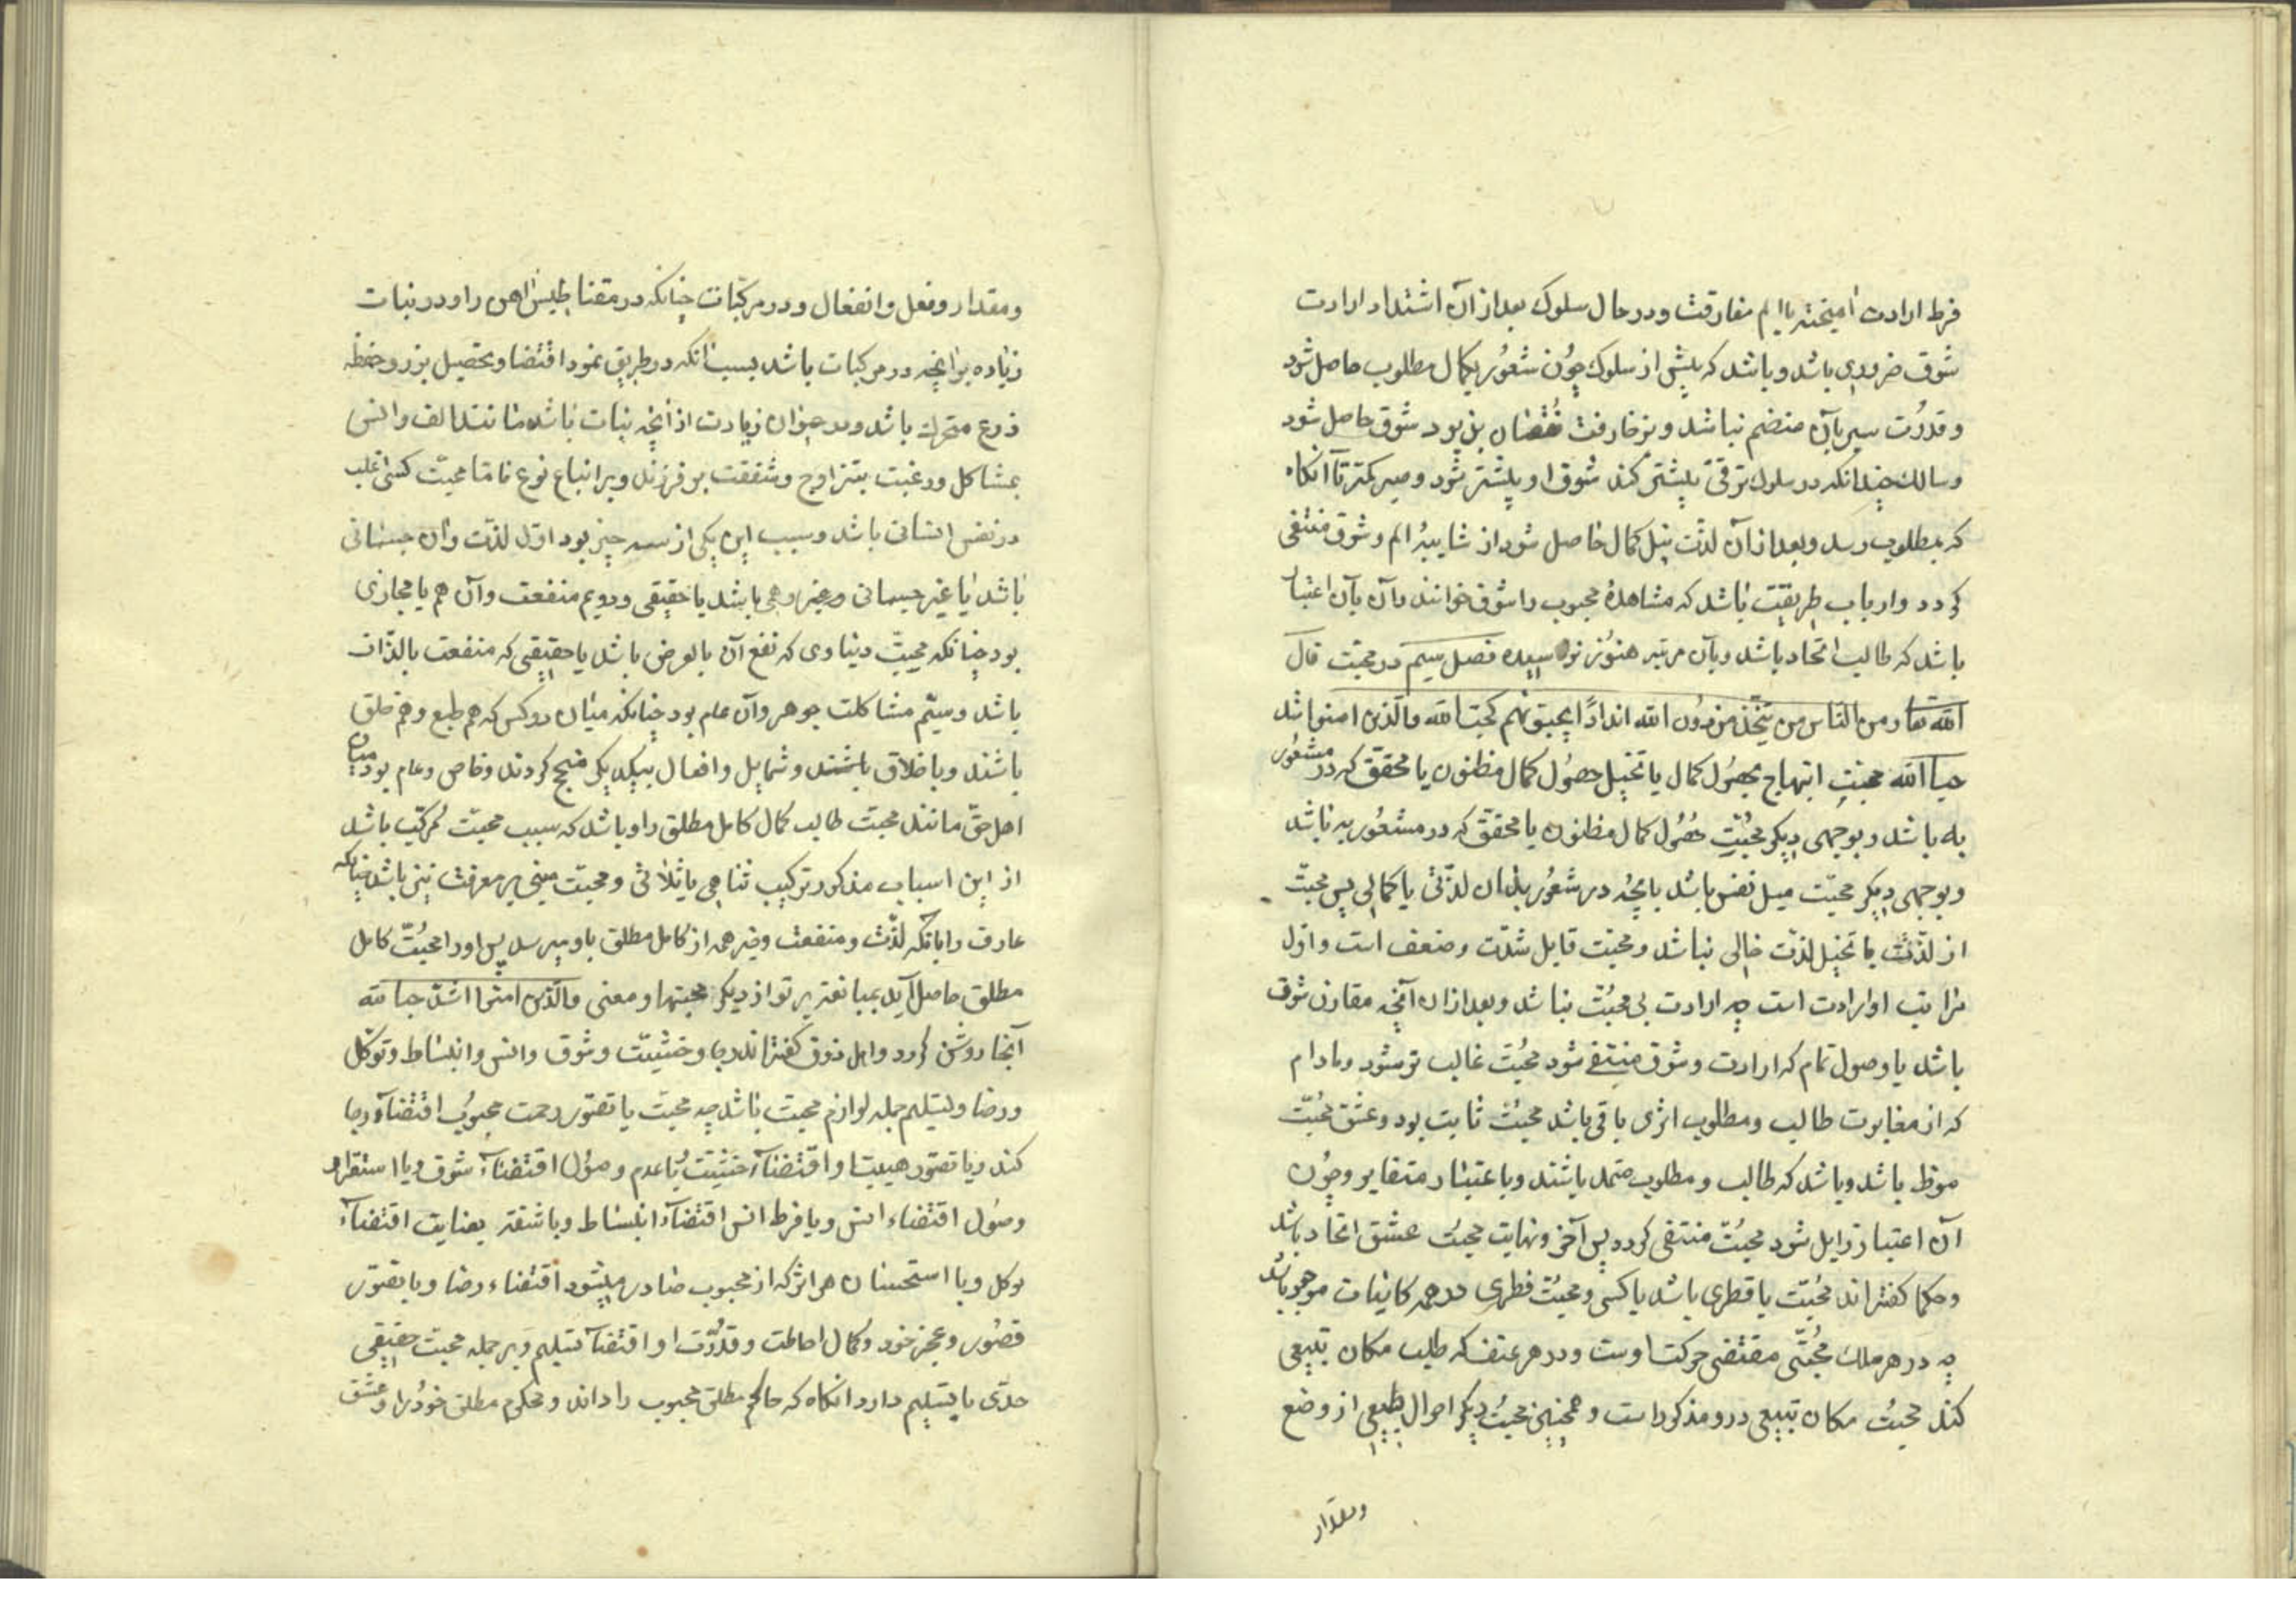 فرط ارادت آمیخته باالم مفارقت و در حال سلوک بعد از آن اشتداد ارادت
شوق ضروری باشد و باشد که پیش از سلوک چون شعور بکمال مطلوب حاصل شود
و قدرت سیر بآن منضم نباشد و بر مفارقت نقصان پذیرد شوق حاصل شود
و سالک چندانکه در سلوک ترقی بیشتر کند شوق او بیشتر شود و صبر کمتر تا آنکاه
که بمطلوب رسد و بعد از آن لذت نیل کمال خاصل شود از شایبهٔ الم و شوق منتفی
کردد و ارباب طریقت باشد که مشاهدهٔ محبوب را شوق خوانند و آن بآن اعتبار
باشد که طالب اتحاد باشد و بآن مرتبه هنوز نرسیده فصل سیم در محبت قال
الله تعا و من الناس من یتخذ من دون الله اندادًا یحبونهم کحب الله والذین امنوا اشد
حبا لله محبت ابتهاج بحصول کمال یا تخیل حصول کمال مظنون یا محقق که در مشعور
به باشد و بوجهی دیکر محبت حصول کمال مظنون یا محقق که در مشعور به باشد
و بوجهی دیکر محبت میل نفس باشد بانچه در شعور بدان لذتی یا کمالی پس محبت
از لذت یا تخیل لذت خالی نباشد و محبت قابل شدت و ضعف است و اول
مراتب او ارادت است چه ارادت بی محبت نباشد و بعد از ان آنچه مقارن شوق
باشد یا وصول تمام که ارادت و شوق منتفی شود محبت غالب تر شود و مادام
که از مغایرت طالب و مطلوب اثری باقی باشد محبت ثابت بود و عشق محبت
مفرط باشد و باشد که طالب و مطلوب متحد باشند و باعتبار متغایر و چون
آن اعتبار زایل شود محبت منتفی کردد پس آخر و نهایت محبت عشق اتحاد باشد
و حکما کفته اند محبت یا فطری باشد یا کسبی و محبت فطری در همه کاینات موجود باشد
چه در هر ملک محبتی مقتضی حرکت اوست و در هر عنصر که طلب مکان تبیعی
کند محبت مکان تبیعی درو مذکور است و همچنین محبت دیکر احوال طبیعی از وضع
ومقدار
و مقدار و فعل و انفعال و در مرکبات چنانکه در مقناطیس اهن را و در نبات
زیاده بر انچه در مرکبات باشد بسبب انکه در طریق نمود اقتضا و تحصیل بزر و حفظ
نوع متحرک باشد و در حیوان زیادت از انچه نبات باشد مانند الف و انس
بمشاکل و رغبت بتزاوج و شفقت بر فرزند و بر ابناء نوع فاما محبت کسبی اغلب
در نفس انسانی باشد و سبب این یکی از سه چیز بود اول لذت و ان جسمانی
باشد یا غیر جسمانی وهمی باشد یا حقیقی و دویم منفعت و آن هم یا مجازی
بود چنانکه محبت دنیاوی که نفع آن بالعرض باشد یا حقیقی که منفعت بالذات
باشد و سیم مشاکلت جوهر و آن عام بود چنانکه میان دو کس که هم طبع و هم خلق
باشند و باخلاق باشند و شمایل و افعال بیکدیکر مبتهج کردند و خاص و عام بود میان
اهل حق مانند محبت طالب کمال کامل مطلق را و باشد که سبب محبت مرکب باشد
از این اسباب مذکور ترکیب ثناهی یا ثلاثی و محبت مبنی بر معرفت نیز باشد چنانکه
عارف را بانکه لذت و منفعت و خیر همه از کامل مطلق باو میرسد پس اورا محبت کامل
مطلق حاصل آید بمبالغه بر تر از دیکر محبتها و معنی والذین امنوا اشد حبا لله
آنجا روشن کردد و اهل ذوق کفته اند رجا و خشیت و شوق و انس و انبساط و توکل
و رضا و تسلیم جمله لوازم محبت باشد چه محبت یا تصور رحمت محبوب اقتضآء رجا
کند و یا تصور هیبت او اقتضآء خشیت و یا عدم وصول اقتضآء شوق و یا استقرار
وصول اقتضاء انس و یا فرط انس اقتضآء انبساط و با ثقه بعنایت اقتضآء
توکل و با استحسان هر اثر که از محبوب صادر میشود اقتضاء رضا و با تصور
قصور و عجز خود و کمال احاطت و قدرت او اقتضآء تسلیم و بر جمله محبت حقیقی
حدی با تسلیم دارد انکاه که حاکم مطلق محبوب را داند و محکوم مطلق خود را و عشق